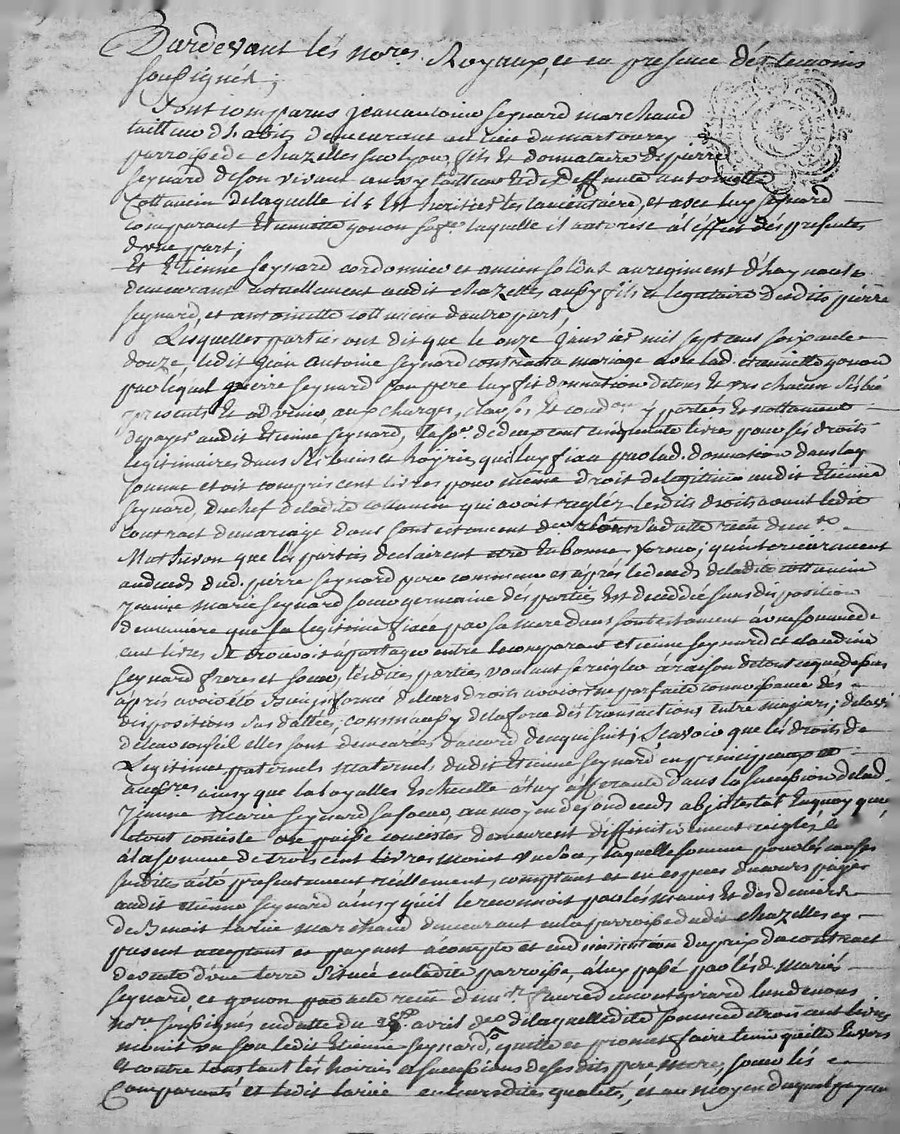 Pardevant lés nores. Royaux, et en presence dés temoins
soussignés;
Sont comparus jean antoine seynard marchand
tailleur d'habits demeurant au lieu du martouray
parroisse de chazelles sur lyon, fils et donnataire de pierre
seynard de son vivant aussy tailleur et de deffunte antoinette
Cottancin de laquelle il est heritier testamentaire, et avec luy seynard
comparant Etiennette gonon sa fe. laquelle il autorise a l'effet dés presentes
d'une part;
Et Etienne seynard cordonnier et ancien soldat au regiment d'haynault
demeurant actuellement audit chazelles aussy fils et legataire desdits pierre
seynard, et antoinette cottancin d'autre part
Lesquelles parties ont dit que le onze janvier mil sept cent soixante
douze, ledit jean antoine seynard contracta mariage avec lad. etiennette gonon
par lequel pierre seynard son pere luy fit donnation de tous et uns chacuns sés biens
presents et advenir, aux charges, clauses et y portées et nottament
de payer audit Etienne seynard, la so. de deux cent cinquante livres pour sés droits
legitimaires dans sés biens et qu'il luy fixa par lad. donnation dans lad.
somme etoit compris cent livres pour même droit de legitime audit Etienne
seynard, du chef de ladite cottancin qui avoit reglé lesdits droits avant ledit
contract de mariage dans son testament reçu de me.
Mathevon que lés parties declairent etre en bonne forme; qu'interieurement
au decés dud. pierre seynard pere commun et après le decés de ladite cottancin
jeanne marie seynard soeur germaine des parties est decedée sans disposition
de maniere que sa legitime fixée par sa mere dans son testament a une somme de
cent livres se trouvoit a partager entre le comparant etienne seynard et claudine
seynard freres et soeur, lésdites parties voulant se regler a raison de tout ce que dessus
après avoir été bien informé de leurs droits avoir une parfaite connoissance dés
dispositions sus dattées, comm'aussy de la force dés transactions entre majeurs; de l'avis
de leur conseil elles sont demeurées d'accord de ce qui suit, Scavoir que lés droits de
Legitimes paternels maternel dudit Etienne seynard en principaux et
accesres. ainsy que la part et eschelle a luy afferante dans la succession de lad.
jeanne marie seynard sa soeur, au moyen de son decés abjntestat en quoy que
le tout consiste ou puisse consister demeurent diffinitivement reglés
a la somme de trois cent livres moins un sou, laquelle somme pour lés causes
susdites a été presentement réellement, comptant et en especes de cours payée
audit etienne seynard ainsy qu'il le reconnoit par lés mains et dés deniers
de Benoit marchand demeurant en la parroisse dudit chazelles cy
present acceptant et payant a compte et en du prix du contract
de vente d'une terre située en ladite parroisse, a luy passé par lés d. mariés
seynard et gonon par acte reçu de me. l'un de nous
nores. soussignés en datte du avril de laquelle dite somme de trois cent livres
moins un sou ledit Etienne seynard quitte et promet faire tenir quitte envers
et contre tous tant lés hoiries et successions de sés dits pere mere, soeur lés
Comparants et ledit en leursdites qualités, et au moyen duquel payem.